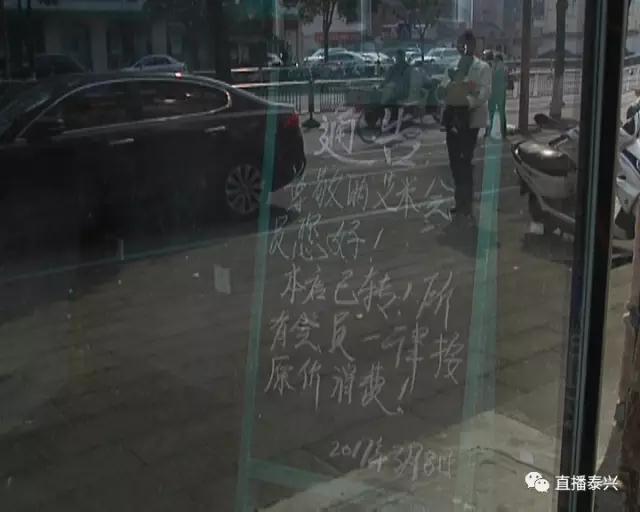 通告
尊敬的艾米会
员您好！
本店已转！所
有会员一律按
原价消费！
2017年3月8日
直播泰兴